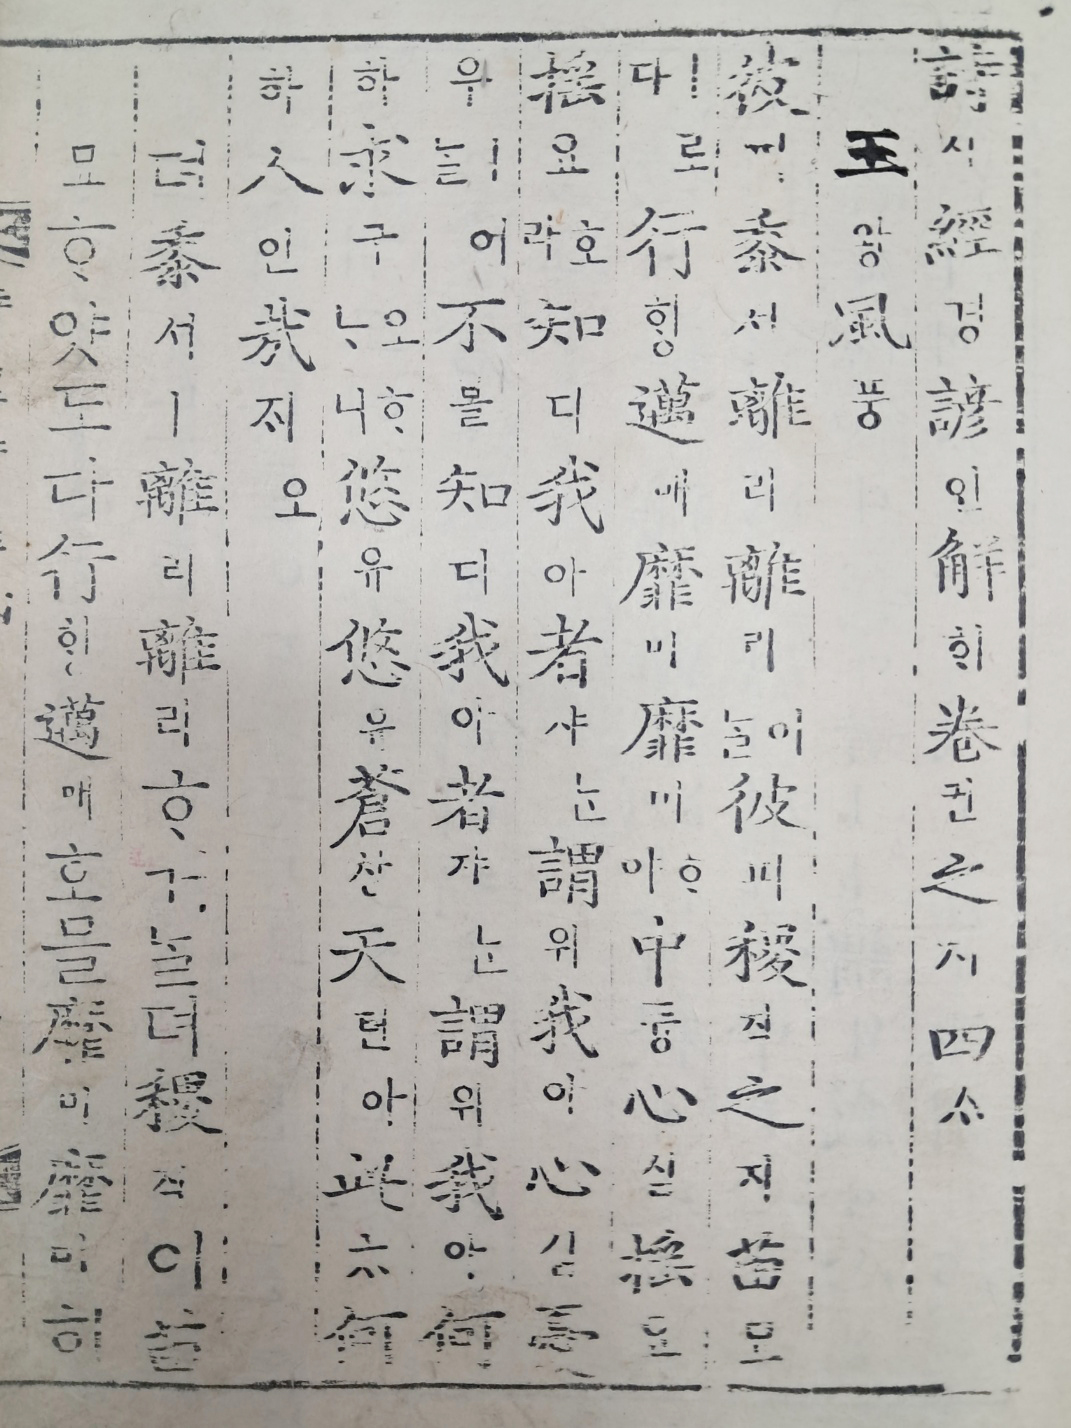 詩시經경諺언解ᄒᆡ卷권之지四ᄉᆞ
王왕風풍
彼피黍셔離리離리이늘彼피稷직之지苗묘
ㅣ로다行ᄒᆡᆼ邁매靡미靡미ᄒᆞ야中듕心심搖요
搖요호라知디我아者쟈ᄂᆞᆫ謂위我아心심憂
우ㅣ어늘不블知디我아者쟈ᄂᆞᆫ謂위我아何
하求구오ᄒᆞᄂᆞ니悠유悠유蒼창天텬아此ᄎᆞ何
하人인哉ᄌᆡ오
뎌黍셔ㅣ離리離리ᄒᆞ거ᄂᆞᆯ뎌稷직이苗
묘ᄒᆞ얏도다行ᄒᆡᆼ邁매호믈靡미靡미히